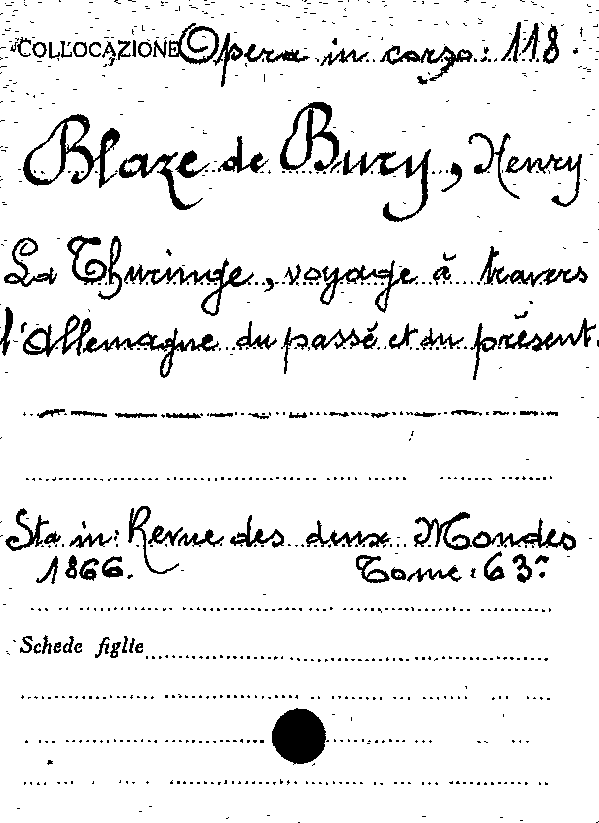 COLLOCAZIONE Opera in corso: 118.
Blaze de Bury, Henry
La Thuringe, voyage à travers
l'Allemagne du passé et du présent.
Sta in: Revue des deux Mondes
1866. Tome: 63°
Schede figlie